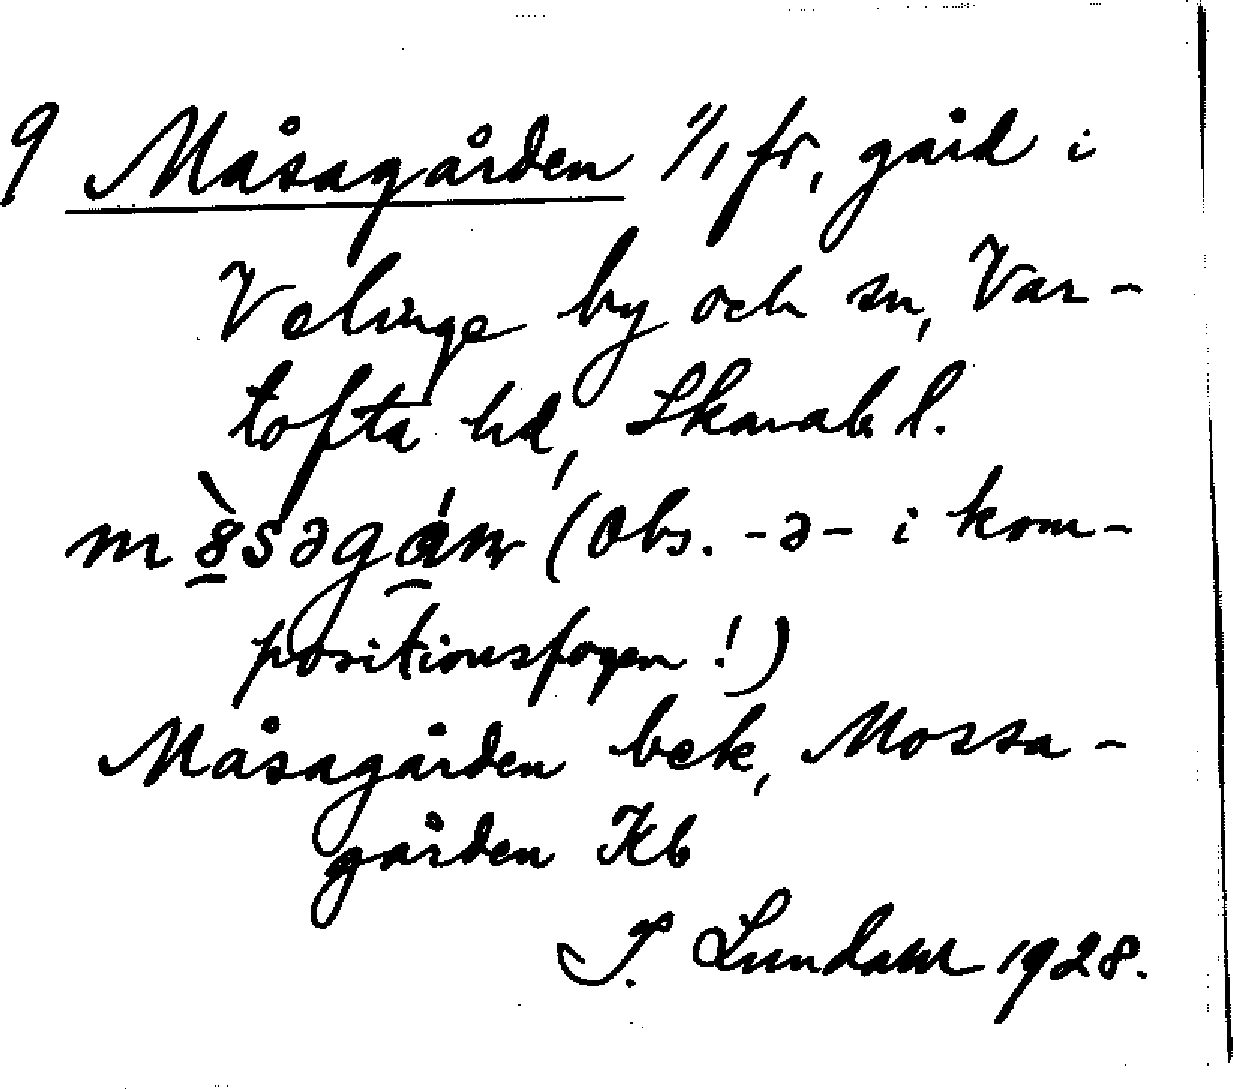 9 Måsagården 1/1 fr, gård i
Velinge by och sn, Var-
tofta hd, Skarab l.
(Obs. -ə- i kom-
positionsfogen!)
Måsagården bek, Mossa-
gården Kb
I. Lundahl 1928.